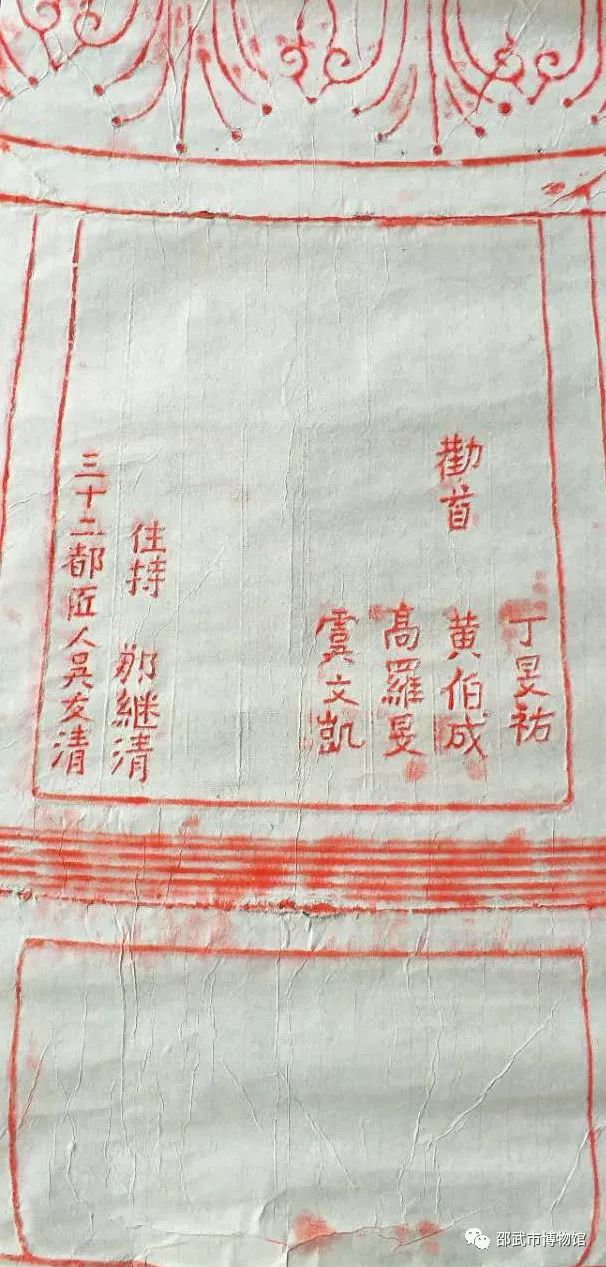 丁旻祐
勸首 黄伯成
高羅旻
虞文凱
住持 那継清
三十二都匠人吳友清
邵武市博物馆